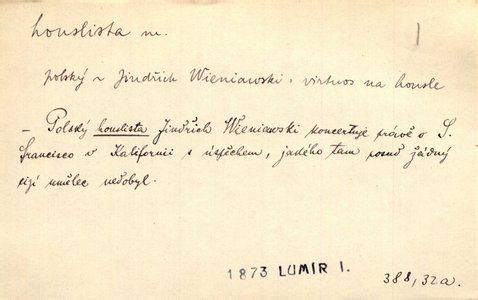 houslista m.
polský ~ Jindřich Wieniawski. virtuos na housle
– Polský houslista Jindřich Wieniawski koncertuje právě v S.
Francisco v Kalifornii s úspěchem, jakého tam posud žádný
jiný umělec nedobyl.
1873 LUMÍR I.
388, 32a.